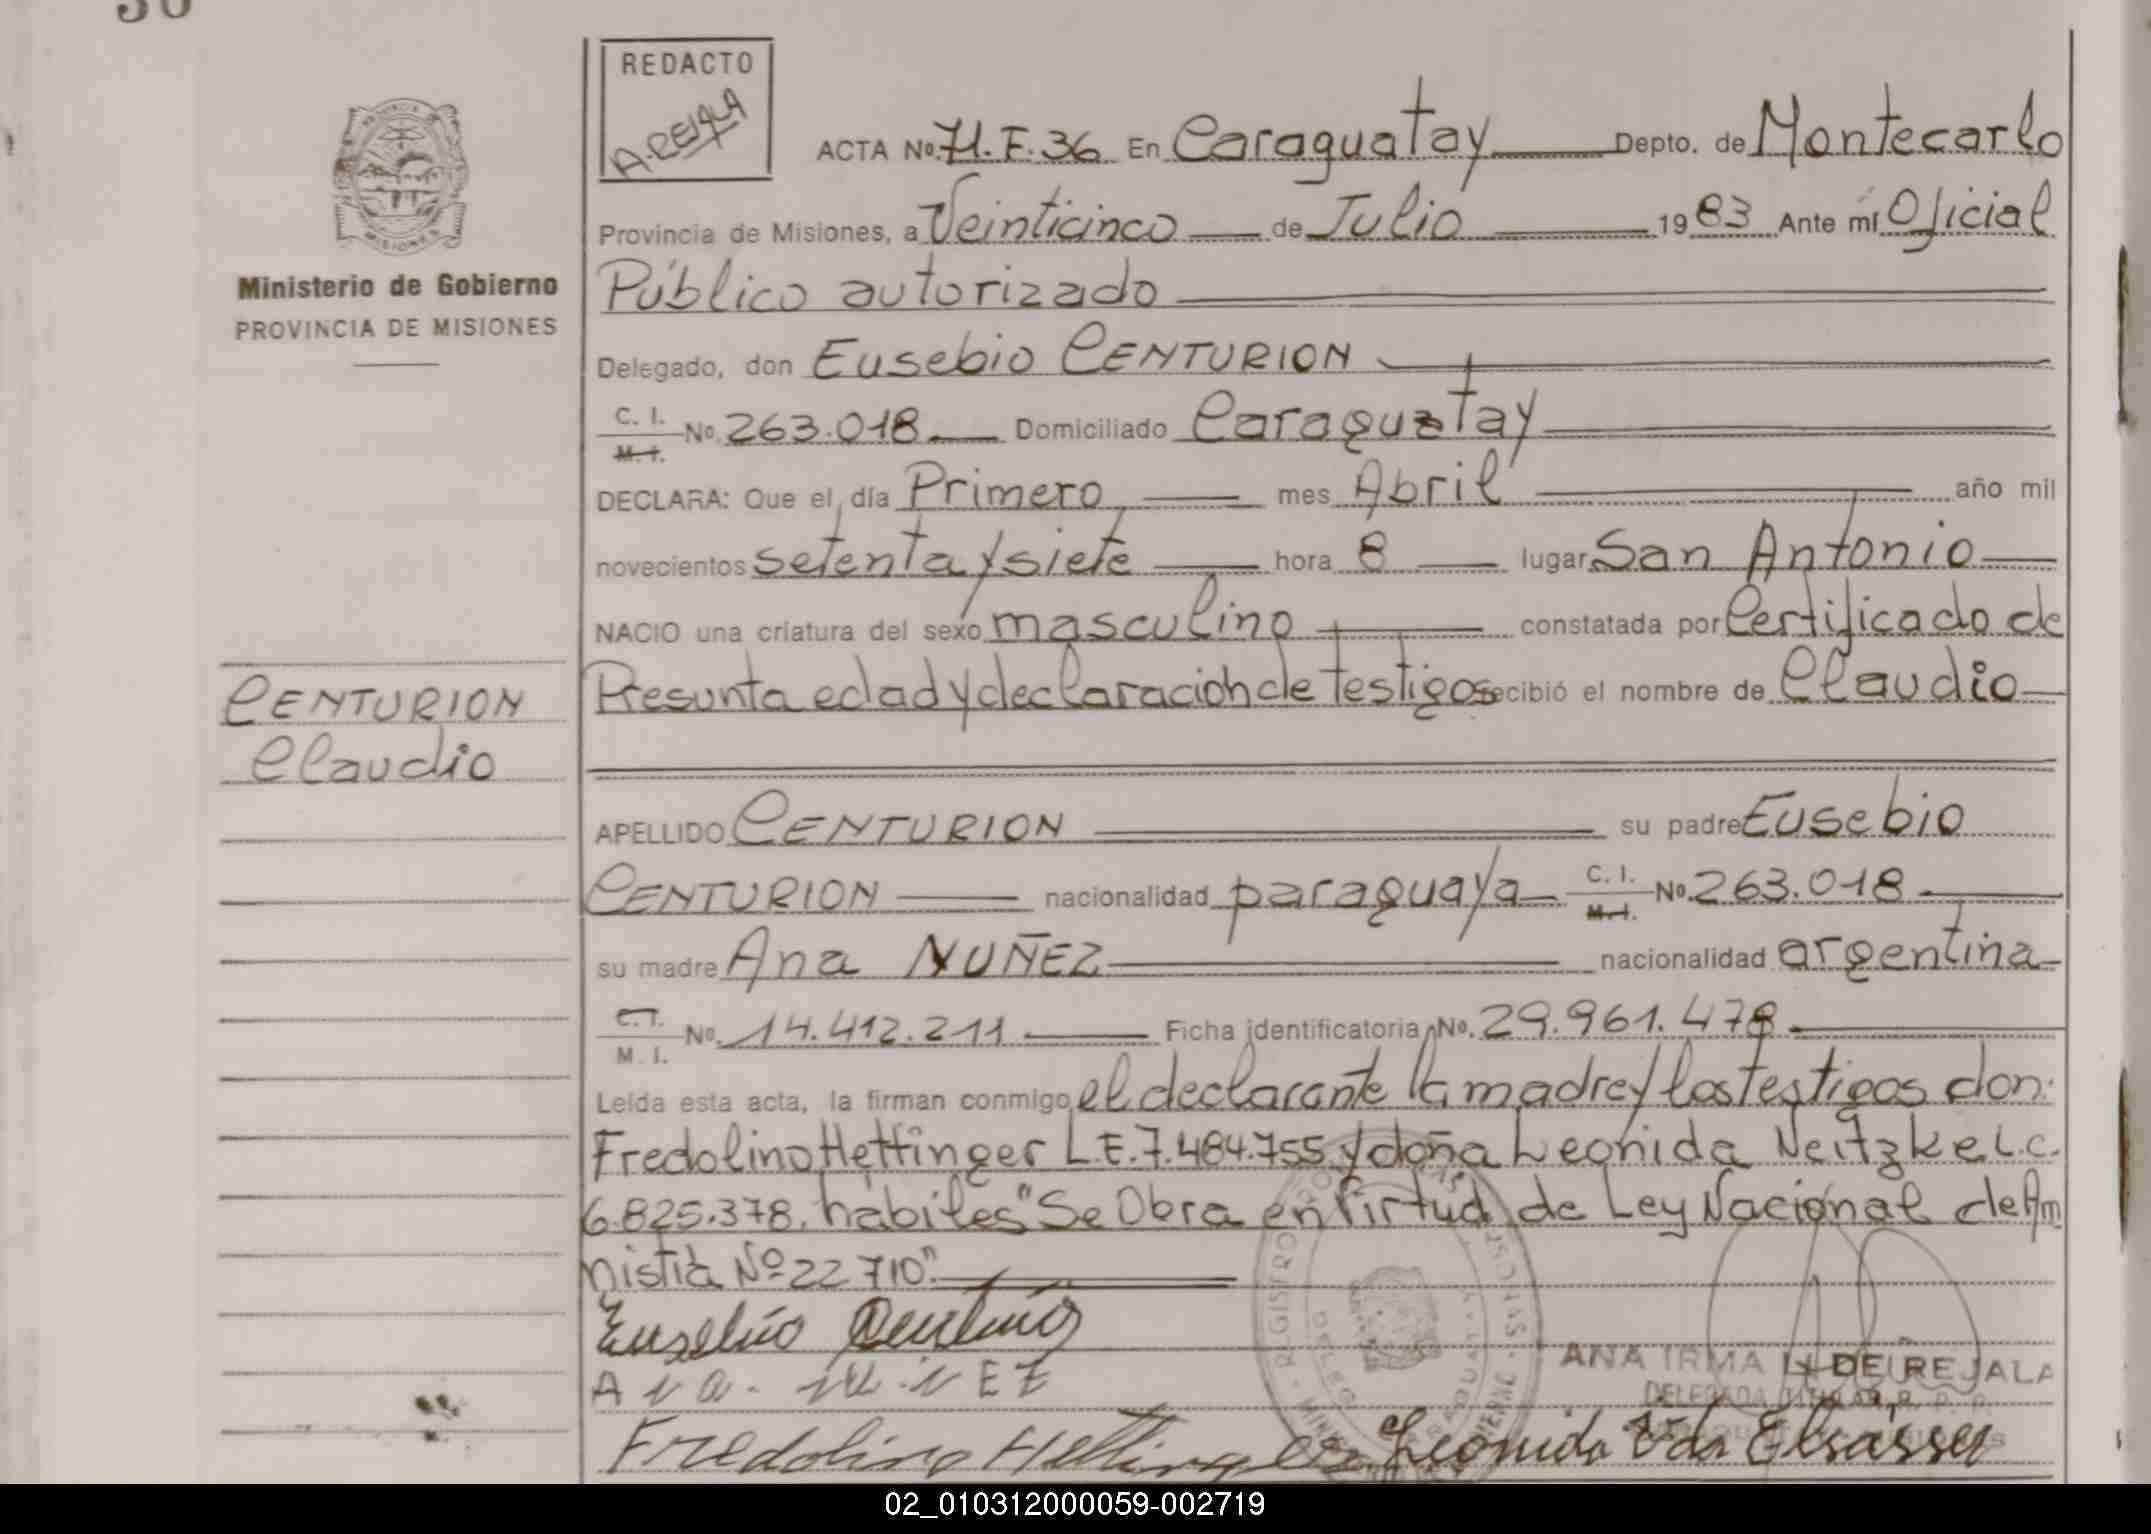 REDACTO
A. REJALA
ACTA Nº 71. F. 36 En Caraguatay Depto. de Montecarlo
Provincia de Misiones, a Veinticinco de Julio 1983 Ante mí Oficial
Público autorizado
Ministerio de Gobierno
PROVINCIA DE MISIONES
Delegado, don Eusebio CENTURION
C. I. M. I. Nº 263.018 Domiciliado Caraguatay
DECLARA: Que el día Primero mes Abril año mil
novecientos setenta y siete hora 8 lugar San Antonio
NACIO una criatura del sexo masculino constatada por Certificado de
Presunta edad y declaración de testigos recibió el nombre de Claudio
CENTURION
Claudio
APELLIDO CENTURION su padre Eusebio
CENTURION nacionalidad paraguaya C. I. M. I. Nº 263.018
su madre Ana NUÑEZ nacionalidad argentina
C. I. M. I. Nº 14.412.211 Ficha identificatoria Nº. 29.961.478
Leída esta acta, la firman conmigo el declarante la madre y los testigos don:
Fredolino Hettinger L.E. 7.484.755 y doña Leonida Neitzke L.C.
6.825.378. hábiles "Se Obra en Virtud de Ley Nacional de Am
nistia Nº 22710".
Eusebio Centurión
ANA IRMA L. DE REJALA
DELEGADA TITULAR R. P. P.
Fredolino Hettinger Leonida Vda Elsässer
02_010312000059-002719